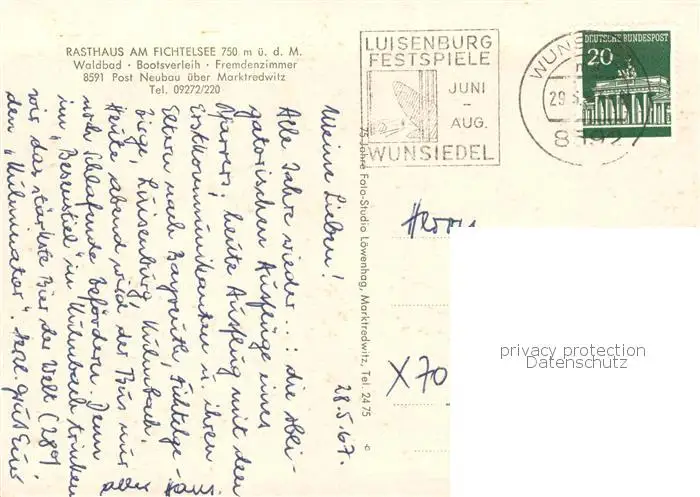 RASTHAUS AM FICHTELSEE 750 m ü. d. M.
Waldbad · Bootsverleih · Fremdenzimmer
8591 Post Neubau über Marktredwitz
Tel. 09272/220
LUISENBURG
FESTSPIELE
JUNI
–
AUG.
WUNSIEDEL
WUNS
29.5.
8592
DEUTSCHE BUNDESPOST
20
75 Jahre Foto-Studio Löwenhag, Marktredwitz, Tel. 24 75
28.5.67.
Meine Lieben!
Alle Jahre wieder...: die obli-
gatorischen Ausflüge eines
Pfarrers, heute Ausflug mit den
Erstkommunikanten u. ihren
Eltern nach Bayreuth, Fichtelge-
birge, Luisenburg, Kulmbach.
Heute abend wird der Bus nur
noch Schlafende befördern. Denn
im "Besenstiel" in Kulmbach trinken
wir das stärkste Bier der Welt (28%)
den "Kulminator". Herzl. Gruß Euer
Herrn
X 70
privacy protection
Datenschutz